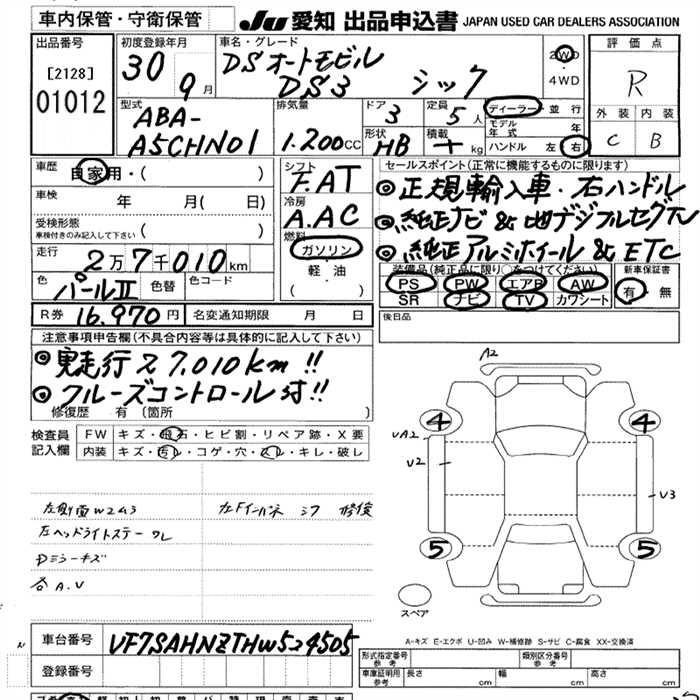 車内保管・守衛保管 JU 愛知 出品申込書 JAPAN USED CAR DEALERS ASSOCIATION
出品番号 初度登録年月 車名・グレード 評価点
[2128] 30 9月 DSオートモビル 2WD
01012 DS3 シック 4WD R
型式 排気量 ドア 定員 ディーラー 並行 外装 内装
ABA- 3 5人 モデル年式 年 C B
A5CHN01 1.200cc 形状 HB 積載 kg ハンドル 左 右
車歴 自家用・( ) シフト セールスポイント(正常に機能するものに限ります)
F.AT ◎正規輸入車・右ハンドル
車検 年 月( 日) 冷房
受検形態 A.AC ◎純正ナビ&地デジフルセグTV
車検付きのみ記入して下さい ( ) 燃料
走行 ガソリン ◎純正アルミホイール&ETC
2万7千010km 軽・油 装備品(純正品に限り○をつけてください) 新車保証書
色 色替 色コード ( ) PS PW エアB AW 有・無
パールⅡ SR ナビ TV カワシート
R券 16,970円 名変通知期限 月 日 後日品
注意事項申告欄(不具合内容等は具体的に記入して下さい)
◎実走行27.010km!!
◎クルーズコントロール付!!
修復歴 有(箇所 )
A2
4 4
検査員 FW キズ・飛石・ヒビ割・リペア跡・X要 UA2
記入欄 内装 キズ・汚レ・コゲ・穴・スレ・キレ・破レ U2
U3
左ヘッドライトステー ワレ
各A.U
5 5
スペア
A-キズ E-エクボ U-凹み W-補修跡 S-サビ C-腐食 XX-交換済
車台番号 VF7SAHNZTHW524505
登録番号 形式指定番号 参考 類別区分番号 参考
車庫証明用 参考 長さ cm 幅 cm 高さ cm